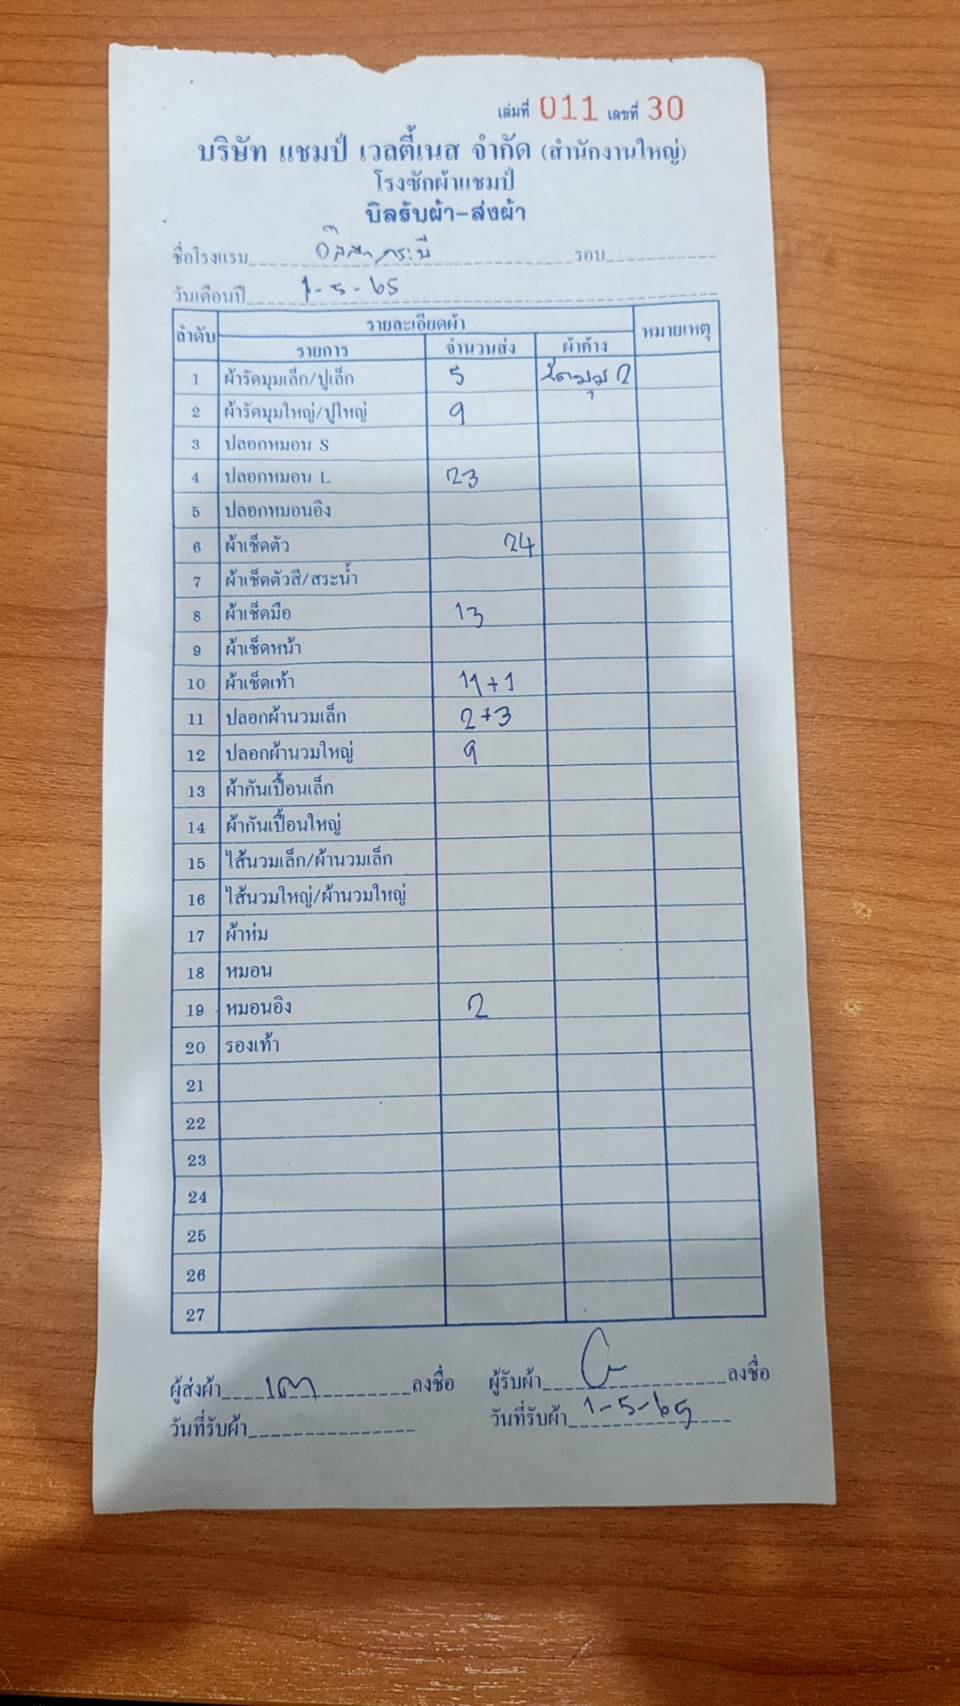 เล่มที่ 011 เลขที่ 30
บริษัท แชมป์ เวลตี้เนส จำกัด (สำนักงานใหญ่)
โรงซักผ้าแชมป์
บิลรับผ้า-ส่งผ้า
ชื่อโรงแรม รอบ
วันเดือนปี 1-5-65
ลำดับ รายละเอียดผ้า หมายเหตุ
รายการ จำนวนส่ง ผ้าค้าง
1 ผ้ารัดมุมเล็ก/ปูเล็ก 5 รัดมุม 2
2 ผ้ารัดมุมใหญ่/ปูใหญ่ 9
3 ปลอกหมอน S
4 ปลอกหมอน L 23
5 ปลอกหมอนอิง
6 ผ้าเช็ดตัว 24
7 ผ้าเช็ดตัวสี/สระน้ำ
8 ผ้าเช็ดมือ 13
9 ผ้าเช็ดหน้า
10 ผ้าเช็ดเท้า 11+1
11 ปลอกผ้านวมเล็ก 2+3
12 ปลอกผ้านวมใหญ่ 9
13 ผ้ากันเปื้อนเล็ก
14 ผ้ากันเปื้อนใหญ่
15 ไส้นวมเล็ก/ผ้านวมเล็ก
16 ไส้นวมใหญ่/ผ้านวมใหญ่
17 ผ้าห่ม
18 หมอน
19 หมอนอิง 2
20 รองเท้า
21
22
23
24
25
26
27
ผู้ส่งผ้า ลงชื่อ ผู้รับผ้า ลงชื่อ
วันที่รับผ้า วันที่รับผ้า 1-5-65